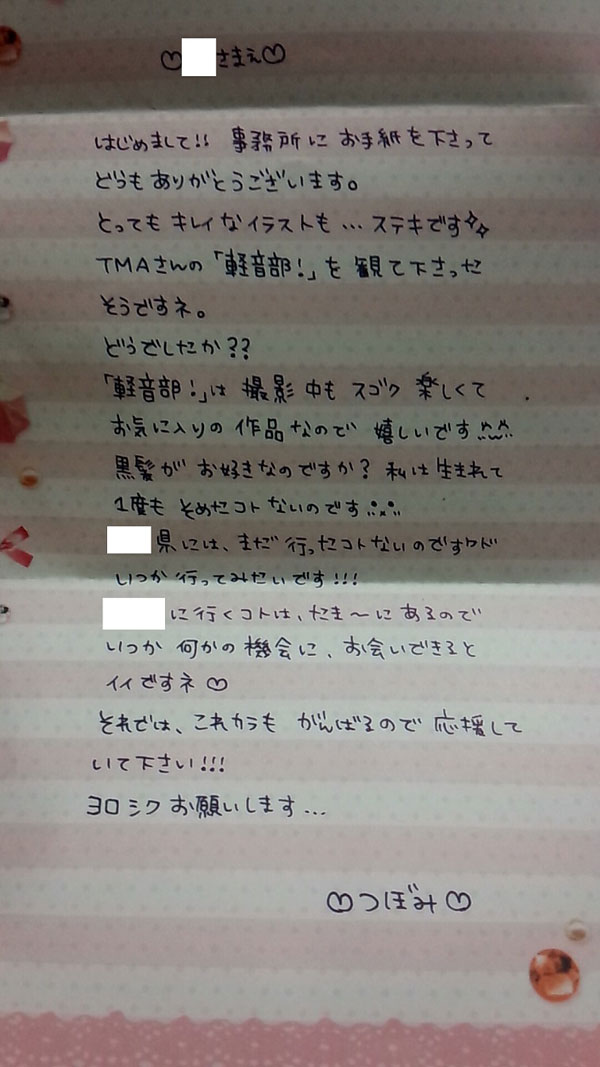 ♡さまえ♡
はじめまして!! 事務所に お手紙を下さって
どうもありがとうございます。
とっても キレイなイラストも… ステキです
TMAさんの「軽音部!」を 観て下さった
そうですネ。
どうでしたか??
「軽音部!」は 撮影 中も スゴク 楽しくて
お気に入りの 作品なので 嬉しいです
黒髪が お好きなのですか? 私は生まれて
1度も そめたコトないのです
県には、まだ 行ったコトないのですケド
いつか 行ってみたいです!!!
に行くコトは、たま〜にあるので
いつか 何かの 機会に、お会いできると
イイですネ♡
それでは、これカラも がんばるので 応援して
いて下さい!!!
ヨロシク お願いします…
♡つぼみ♡